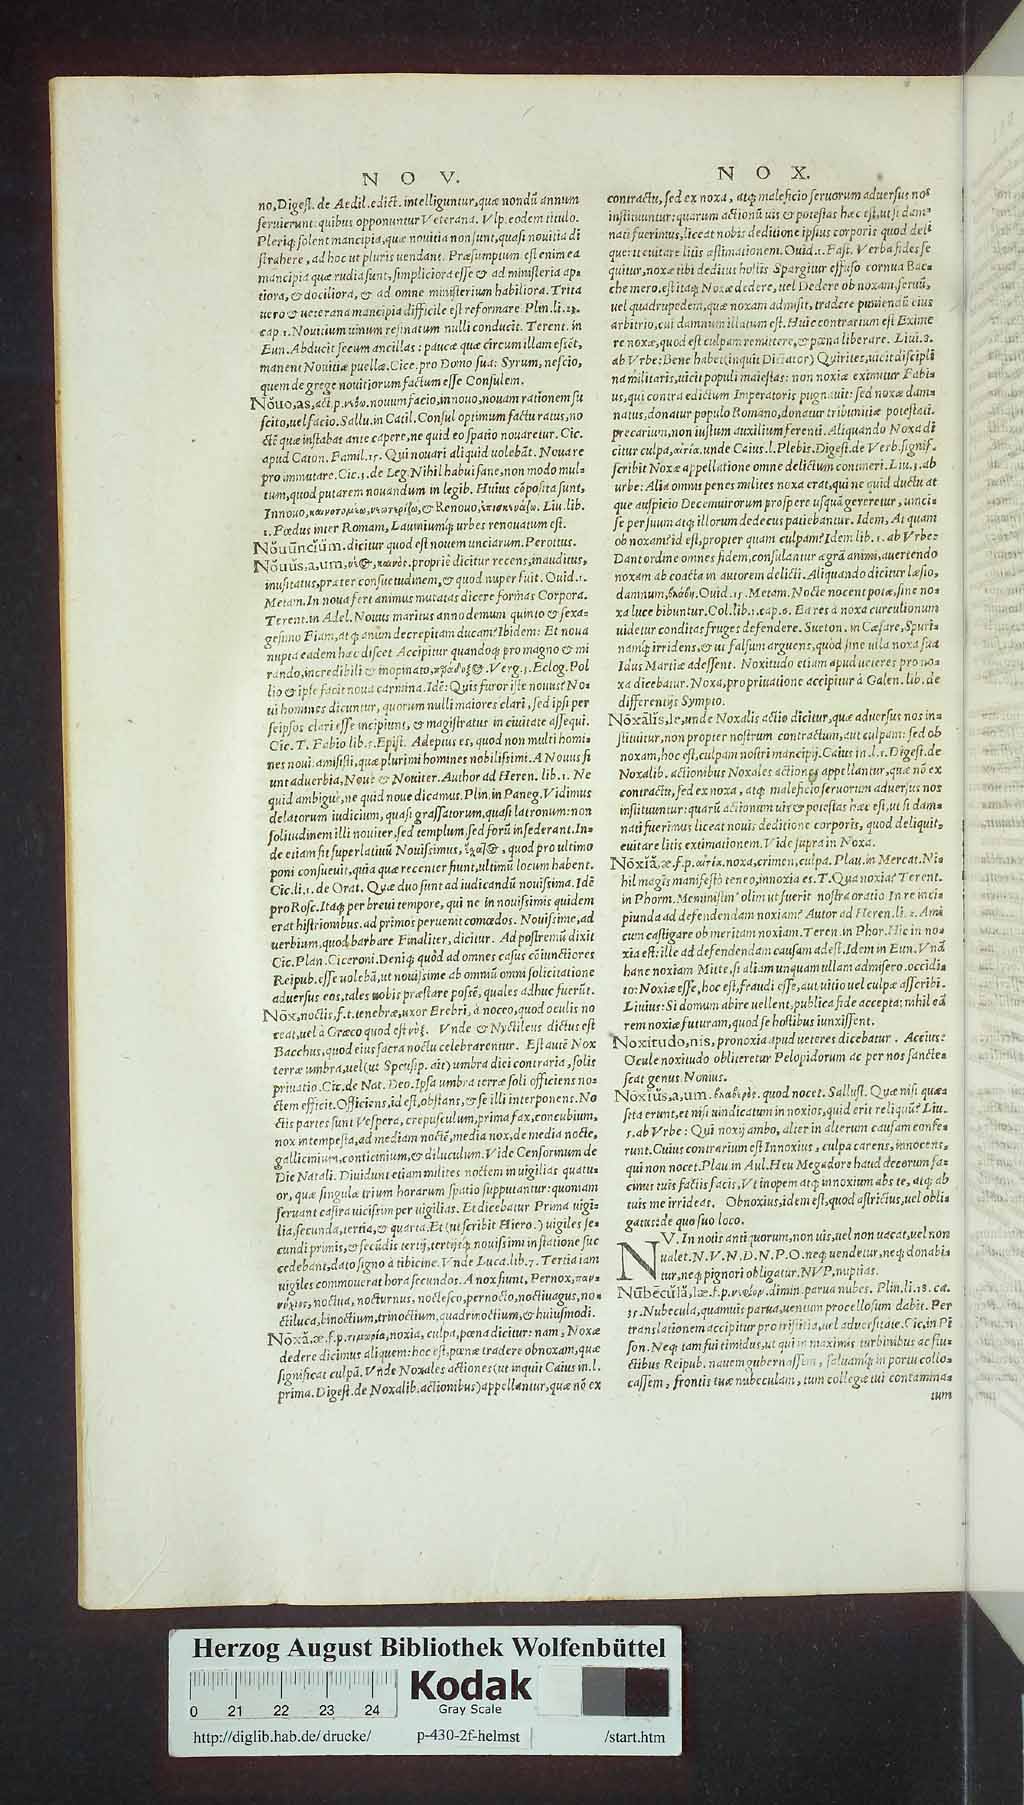 N O V.
no, Digest. de Aedil. edict. intelliguntur, quæ nondū annum
seruierunt: quibus opponuntur Veterana. Vlp. eodem titulo.
Pleriq; solent mancipia, quæ nouitia non sunt, quasi nouitia di
strahere, ad hoc ut pluris uendant. Præsumptum est enim ea
mancipia quæ rudia sunt, simpliciora esse & ad ministeria ap=
tiora, & dociliora, & ad omne ministerium habiliora. Trita
uero & ueterana mancipia difficile est reformare. Plin. li. 23.
cap. 1. Nouitium uinum resinatum nulli conducit. Terent. in
Eun. Abducit secum ancillas: paucæ quæ circum illam essēt,
manent Nouitiæ puellæ. Cice. pro Domo sua: Syrum, nescio,
quem de grege nouitiorum factum esse Consulem.
Nŏuo, as, acti. p. νεόω. nouum facio, innouo, nouam rationem su
scito, uel facio. Sallu. in Catil. Consul optimum factu ratus, no
ctē quæ instabat ante capere, ne quid eo spatio nouaretur. Cic.
apud Caton. Famil. 15. Qui nouari aliquid uolebāt. Nouare
pro immutare. Cic. 3. de Leg. Nihil habui sane, non modo mul=
tum, quod putarem nouandum in legib. Huius cōposita sunt,
Innouo, καινοτομέω, νεωτερίζω, & Renouo, ἐπισκευάζω. Liu. lib.
1. Fœdus inter Romam, Lauiniumq; urbes renouatum est.
Nŏuūncĭum. dicitur quod est nouem unciarum. Perottus.
Nŏuŭs, a, um, νέος, καινός. proprie dicitur recens, inauditus,
inusitatus, præter consuetudinem, & quod nuper fuit. Ouid. 1.
Metam. In noua fert animus mutatas dicere formas Corpora.
Terent. in Adel. Nouus maritus anno demum quinto & sexa=
gesimo Fiam, atq; anum decrepitam ducam? Ibidem: Et noua
nupta eadem hæc discet Accipitur quandoq; pro magno & mi
rando, incredibili & inopinato, παράδοξος. Verg. 3. Eclog. Pol
lio & ipse facit noua carmina. Idē: Quis furor iste nouus? No=
ui homines dicuntur, quorum nulli maiores clari, sed ipsi per
seipsos clari esse incipiunt, & magistratus in ciuitate assequi.
Cic. T. Fabio lib. 5. Epist. Adeptus es, quod non multi homi=
nes noui: amisisti, quæ plurimi homines nobilissimi. A Nouus fi
unt aduerbia, Noue & Nouiter. Author ad Heren. lib. 1. Ne
quid ambigue, ne quid noue dicamus. Plin. in Paneg. Vidimus
delatorum iudicium, quasi grassatorum, quasi latronum: non
solitudinem illi nouiter, sed templum, sed forū insederant. In=
de etiam fit superlatiuū Nouissimus, ἔσχατος, quod pro ultimo
poni consueuit, quia quæ recenter fiunt, ultimū locum habent.
Cic. li. 1. de Orat. Quæ duo sunt ad iudicandū nouissima. Idē
pro Rosc. Itaq; per breui tempore, qui ne in nouissimis quidem
erat histrionibus, ad primos peruenit comœdos. Nouissime, ad
uerbium, quod barbare Finaliter, dicitur. Ad postremū dixit
Cic. Plan. Ciceroni. Deniq; quòd ad omnes casus cōiunctiores
Reipub. esse uolebā, ut nouissime ab omniū omni solicitatione
aduersus eos, tales uobis præstare possē, quales adhuc fuerūt.
Nŏx, noctis, f. t. tenebræ, uxor Erebri, à noceo, quod oculis no
ceat, uel à Græco quod est νύξ. Vnde & Nyctileus dictus est
Bacchus, quod eius sacra noctu celebrarentur. Est autē Nox
terræ umbra, uel (ut Speusip. ait) umbra diei contraria, solis
priuatio. Cic. de Nat. Deo. Ipsa umbra terræ soli officiens no=
ctem efficit. Officiens, id est, obstans, & se illi interponens. No
ctis partes sunt Vespera, crepusculum, prima fax, concubium,
nox intempesta, ad mediam noctē, media nox, de media nocte,
gallicinium, conticinium, & diluculum. Vide Censorinum de
Die Natali. Diuidunt etiam milites noctem in uigilias quatu=
or, quæ singulæ trium horarum spatio supputantur: quoniam
seruant castra uicissim per uigilias. Et dicebatur Prima uigi=
lia, secunda, tertia, & quarta. Et (ut scribit Hiero.) uigiles se=
cundi primis, & secūdis tertij, tertijsq; nouissimi in statione suc
cedebant, dato signo à tibicine. Vnde Luca. lib. 7. Tertia iam
uigiles commouerat hora secundos. A nox fiunt, Pernox, παν=
νύχιος, noctua, nocturnus, noctesco, pernocto, noctiuagus, no=
ctiluca, binoctium, trinoctium, quadrinoctium, & huiusmodi.
Nŏxă, æ. f. p. τιμωρία, noxia, culpa, pœna dicitur: nam, Noxæ
dedere dicimus aliquem: hoc est, pœnæ tradere ob noxam, quæ
significat culpā. Vnde Noxales actiones (ut inquit Caius in l.
prima. Digest. de Noxalib. actionibus) appellantur, quæ nō ex
N O X.
contractu, sed ex noxa, atq; maleficio seruorum aduersus nos
instituuntur: quarum actionū uis & potestas hæc est, ut si dam=
nati fuerimus, liceat nobis deditione ipsius corporis quod deli
querit euitare litis æstimationem. Ouid. 1. Fast. Verba fides se
quitur, noxæ tibi deditus hostis Spargitur effuso cornua Bac=
che mero. est itaq; Noxæ dedere, uel Dedere ob noxam, seruū,
uel quadrupedem, quæ noxam admisit, tradere puniendū eius
arbitrio, cui damnum illatum est. Huic contrarium est Exime
re noxæ, quod est culpam remittere, & pœna liberare. Liui. 8.
ab Vrbe: Bene habet (inquit Dictator) Quirites, uicit discipli
na militaris, uicit populi maiestas: non noxiæ eximitur Fabi=
us, qui contra edictum Imperatoris pugnauit: sed noxæ dam=
natus, donatur populo Romano, donatur tribunitiæ potestati.
precarium, non iustum auxilium ferenti. Aliquando Noxa di
citur culpa, αἰτία. unde Caius. l. Plebis. Digest. de Verb. signif.
scribit Noxæ appellatione omne delictum contineri. Liu. 3. ab
urbe: Alia omnis penes milites noxa erat, qui ne quid ductu at
que auspicio Decemuirorum prospere usquā gereretur, uinci=
se per suum atq; illorum dedecus patiebantur. Idem, At quam
ob noxam? id est, propter quam culpam? Idem lib. 2. ab Vrbe:
Dant ordine omnes fidem, consulantur ægrā animi, auertendo
noxam ab coacta in autorem delicti. Aliquando dicitur læsio,
damnum, βλάβη. Ouid. 15. Metam. Nocte nocent potæ, sine no=
xa luce bibuntur. Col. lib. 1. cap. 6. Ea res à noxa curculionum
uidetur conditas fruges defendere. Sueton. in Cæsare, Spuri=
namq; irridens, & ut falsum arguens, quòd sine ulla noxa suæ
Idus Martiæ adessent. Noxitudo etiam apud ueteres pro no=
xa dicebatur. Noxa, pro priuatione accipitur à Galen. lib. de
differentijs Sympto.
Nŏxālĭs, le, unde Noxalis actio dicitur, quæ aduersus nos in=
stituitur, non propter nostrum contractum, aut culpam: sed ob
noxam, hoc est, culpam nostri mancipij. Caius in l. 1. Digest. de
Noxalib. actionibus Noxales actiones appellantur, quæ nō ex
contractu, sed ex noxa, atq; maleficio seruorum aduersus nos
instituuntur: quarū actionum uis & potestas hæc est, ut si dam=
nati fuerimus liceat nouis deditione corporis, quod deliquit,
euitare litis extimationem. Vide supra in Noxa.
Nŏxĭă, æ. f. p. αἰτία. noxa, crimen, culpa. Plau. in Mercat. Ni=
hil magis manifesto teneo, innoxia es. T. Qua noxia? Terent.
in Phorm. Meministin' olim ut fuerit nostra oratio In re inci=
piunda ad defendendam noxiam? Autor ad Heren. li. 2. Ami
cum castigare ob meritam noxiam. Teren. in Phor. Hic in no=
xia est: ille ad defendendam causam adest. Idem in Eun. Vnā
hanc noxiam Mitte, si aliam unquam ullam admisero. occidi=
to: Noxiæ esse, hoc est, fraudi esse, aut uitio uel culpæ ascribi.
Liuius: Si domum abire uellent, publica fide accepta: nihil eā
rem noxiæ futuram, quod se hostibus iunxissent.
Noxitudo, nis, pro noxia apud ueteres dicebatur. Accius:
Ocule noxitudo obliteretur Pelopidorum ac per nos sancte=
scat genus Nonius.
Nŏxĭŭs, a, um. βλαβερός. quod nocet. Sallust. Quæ nisi quæ=
sita erunt, et nisi uindicatum in noxios, quid erit reliquū? Liu.
5. ab Vrbe: Qui noxij ambo, alter in alterum causam confe=
runt. Cuius contrarium est Innoxius, culpa carens, innocens,
qui non nocet. Plau. in Aul. Heu Megadore haud decorum fa=
cinus tuis factis facis, Vt inopem atq; innoxium abs te, atq; ab
tuis me irrideas. Obnoxius, idem est, quod astrictus, uel obli=
gatus: de quo suo loco.
NV. In notis antiquorum, non uis, uel non uacat, uel non
ualet. N. V. N. D. N. P. O. neq; uendetur, neq; donabi=
tur, neq; pignori obligatur. NVP. nuptias.
Nūbēcŭlă, læ. f. p. νεφίον. dimin. parua nubes. Plin. li. 18. ca.
35. Nubecula, quamuis parua, uentum procellosum dabit. Per
translationem accipitur pro tristitia, uel aduersitate. Cic. in Pi
son. Neq; tam fui timidus, ut qui in maximis turbinibus ac flu=
ctibus Reipub. nauem gubernassem, saluamq; in portu collo=
cassem, frontis tuæ nubeculam, tum collegæ tui contamina=
tum
Herzog August Bibliothek Wolfenbüttel
0 21 22 23 24
Kodak
Gray Scale
http://diglib.hab.de/drucke/ p-430-2f-helmst /start.htm